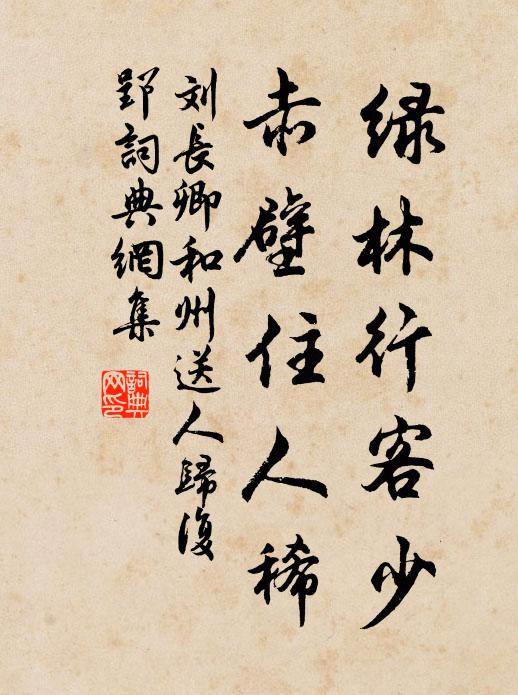 绿林行客少
赤壁住人稀
刘長卿和州送人歸復
郢詞典網集
詞典网印